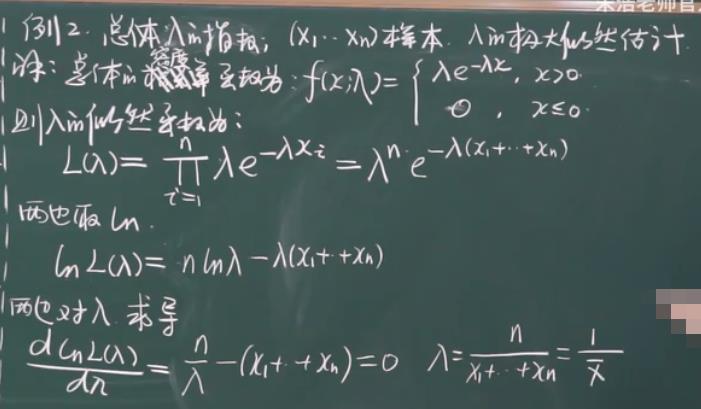 朱浩老师官
例12. 总体λ的指数, (x₁…xₙ)样本. λ的极大似然估计
解: 总体的密度函数为: f(x;λ)= { λe^{-λx}, x>0.
0 , x≤0.
则λ的似然函数为:
L(λ)= ∏_{i=1}^{n} λe^{-λx_i} = λⁿ·e^{-λ(x₁+…+xₙ)}
两边取ln.
ln L(λ)= n lnλ-λ(x₁+…+xₙ)
两边对λ 求导
d ln L(λ)/dλ = n/λ -(x₁+…+xₙ)=0 λ= n/(x₁+…+xₙ) = 1/x̄